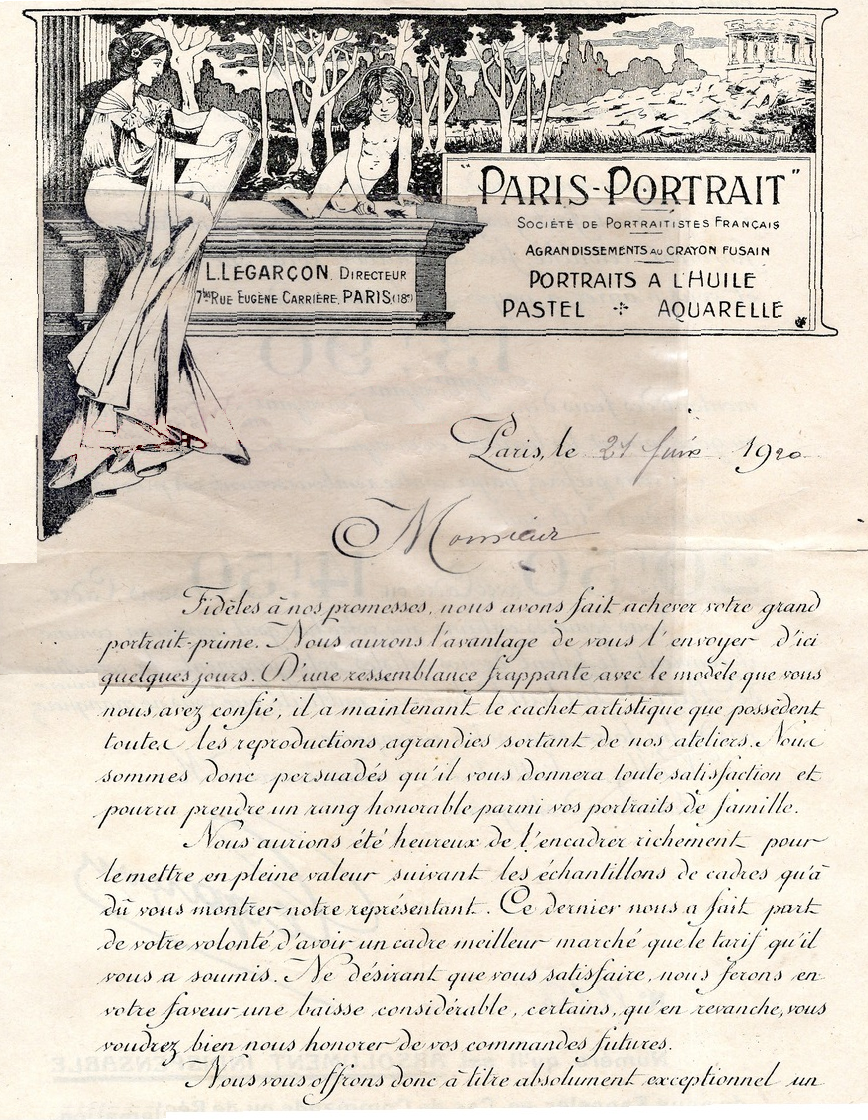 "PARIS-PORTRAIT"
SOCIÉTÉ DE PORTRAITISTES FRANÇAIS
AGRANDISSEMENTS AU CRAYON FUSAIN
PORTRAITS A L'HUILE
PASTEL AQUARELLE
L. LEGARÇON. DIRECTEUR
7bis RUE EUGÈNE CARRIÈRE, PARIS (18e)
Paris, le 21 1920
Monsieur
Fidèles à nos promesses, nous avons fait achever votre grand
portrait-prime. Nous aurons l'avantage de vous l'envoyer d'ici
quelques jours. D'une ressemblance frappante avec le modèle que vous
nous avez confié, il a maintenant le cachet artistique que possèdent
toutes les reproductions agrandies sortant de nos ateliers. Nous
sommes donc persuadés qu'il vous donnera toute satisfaction et
pourra prendre un rang honorable parmi vos portraits de famille.
Nous aurions été heureux de l'encadrer richement pour
le mettre en pleine valeur suivant les échantillons de cadres qu'a
dû vous montrer notre représentant. Ce dernier nous a fait part
de votre volonté d'avoir un cadre meilleur marché que le tarif qu'il
vous a soumis. Ne désirant que vous satisfaire, nous ferons en
votre faveur une baisse considérable, certains, qu'en revanche, vous
voudrez bien nous honorer de vos commandes futures.
Nous vous offrons donc à titre absolument exceptionnel un